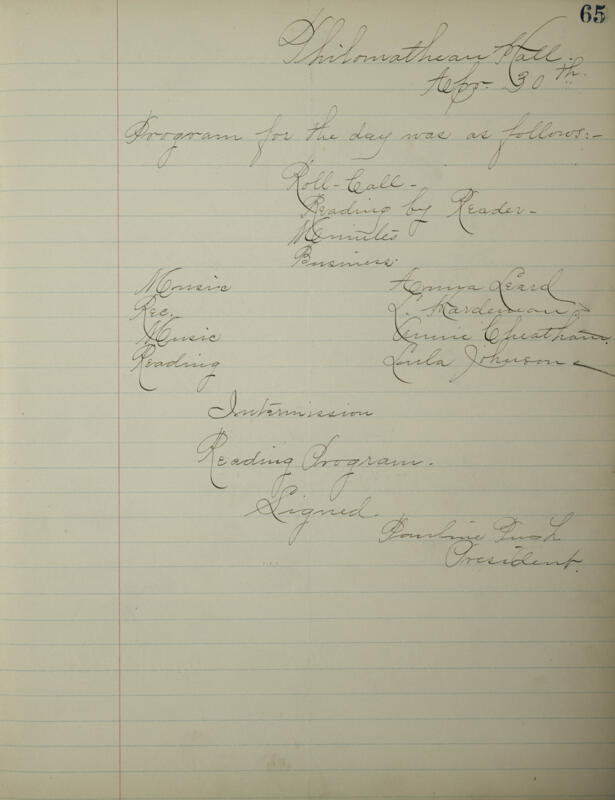 65
Philomathean Hall.
Apr. 30th.
Program for the day was as follows:-
Roll-Call-
Reading by Reader-
Minutes
Business.
Music Anna Leard
Rec. L. Hardeman
Music Annie Cheatham.
Reading Lula Johnson
Intermission
Reading Program.
Signed.
Pauline Push
President.